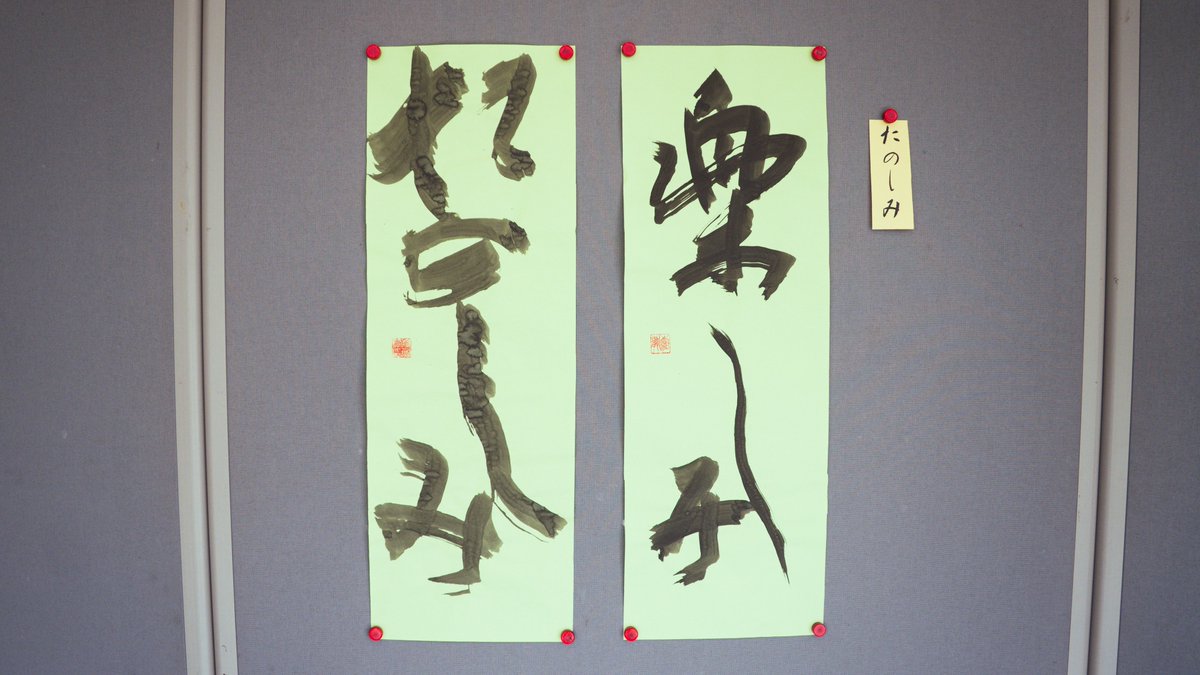 たのしみ
楽しみ
しみ